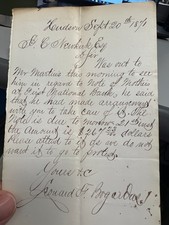 Hudson Sept 20th 187
G. C. Newkirk Esq
Sir
Was not to
Mr Martins this morning to see
him in regard to Note of Mother
at First National Bank, he said
that he had made arrangement
with you to take care of it. The
Note is due to morrow 21st inst
the Amount is $267 dollars
Please attend to it as we do not
want it to go to protest.
Yours &c